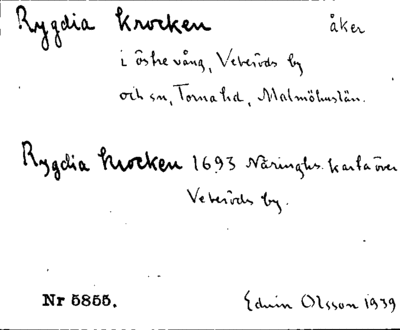 Rygdia Krocken åker
i östre vång, Veberöds by
och sn, Torna hd, Malmöhuslän.
Rygdia krocken 1693 karta över
Veberöds by.
Nr 5855. Edvin Olsson 1939